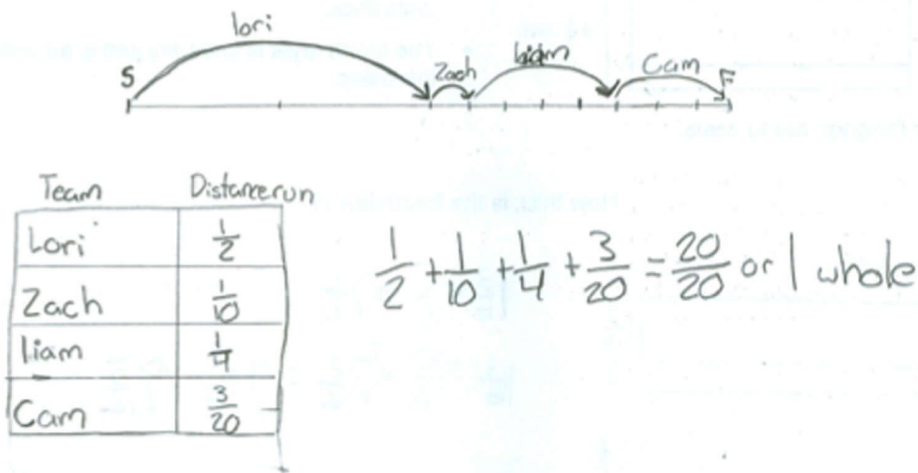 lori
S Zach liam Cam F
Team Distance run
Lori 1/2
Zach 1/10
liam 1/4
Cam 3/20
1/2 + 1/10 + 1/4 + 3/20 = 20/20 or 1 whole